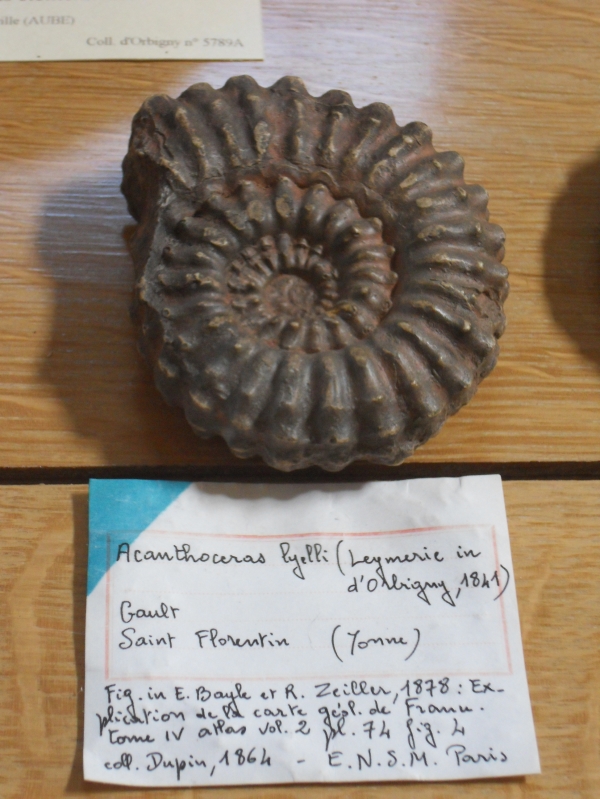 ille (AUBE)
Coll. d'Orbigny n° 5789A
Acanthoceras lyelli (Leymerie in
d'Orbigny, 1841)
Gault
Saint Florentin (Yonne)
Fig. in E. Bayle et R. Zeiller, 1878 : Ex-
plication de la carte géol. de France.
tome IV atlas vol. 2 pl. 74 fig. 4
coll. Dupin, 1864 - E.N.S.M. Paris